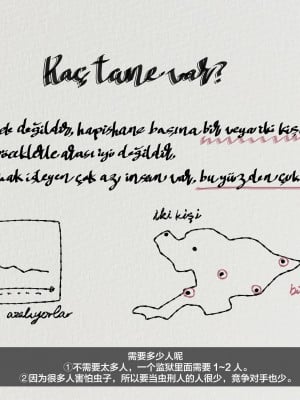 Kaç tane var?
de değildir, hapishane başına bir veya iki kişi
böceklerle arası iyi değildir,
mak isteyen çok azı insan var, bu yüzden çok
iki kişi
azalıyorlar
bi
需要多少人呢
①不需要太多人，一个监狱里面需要 1~2 人。
②因为很多人害怕虫子，所以要当虫刑人的人很少，竞争对手也少。